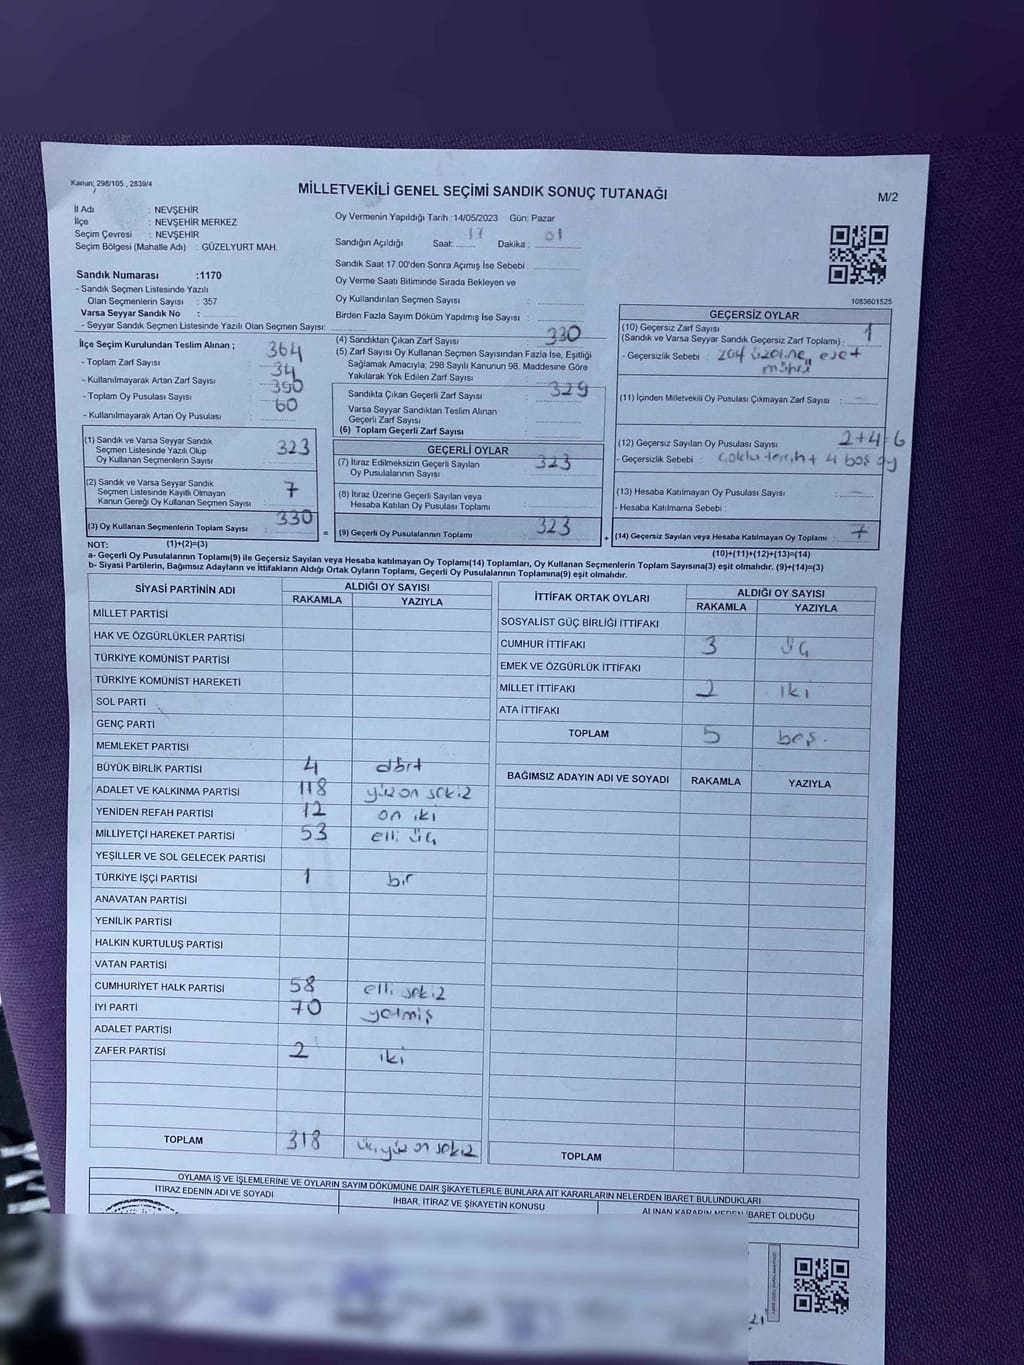 Kanun; 298/105 , 2839/4
MİLLETVEKİLİ GENEL SEÇİMİ SANDIK SONUÇ TUTANAĞI
M/2
İl Adı : NEVŞEHİR
İlçe : NEVŞEHİR MERKEZ
Seçim Çevresi : NEVŞEHİR
Seçim Bölgesi (Mahalle Adı) : GÜZELYURT MAH.
Oy Vermenin Yapıldığı Tarih :14/05/2023 Gün: Pazar
Sandığın Açıldığı Saat: 17 Dakika : 01
Sandık Saat 17.00'den Sonra Açımış İse Sebebi :
Oy Verme Saati Bitiminde Sırada Bekleyen ve
Oy Kullandırılan Seçmen Sayısı :
Birden Fazla Sayım Döküm Yapılmış İse Sayısı :
Sandık Numarası :1170
- Sandık Seçmen Listesinde Yazılı
Olan Seçmenlerin Sayısı : 357
Varsa Seyyar Sandık No :
- Seyyar Sandık Seçmen Listesinde Yazılı Olan Seçmen Sayısı:
1083601525
İlçe Seçim Kurulundan Teslim Alınan ;
- Toplam Zarf Sayısı : 364
- Kullanılmayarak Artan Zarf Sayısı : 34
- Toplam Oy Pusulası Sayısı : 390
- Kullanılmayarak Artan Oy Pusulası : 60
(1) Sandık ve Varsa Seyyar Sandık
Seçmen Listesinde Yazılı Olup
Oy Kullanan Seçmenlerin Sayısı : 323
(2) Sandık ve Varsa Seyyar Sandık
Seçmen Listesinde Kayıtlı Olmayan
Kanun Gereği Oy Kullanan Seçmen Sayısı : 7
(3) Oy Kullanan Seçmenlerin Toplam Sayısı : 330
(4) Sandıktan Çıkan Zarf Sayısı : 330
(5) Zarf Sayısı Oy Kullanan Seçmen Sayısından Fazla İse, Eşitliği
Sağlamak Amacıyla, 298 Sayılı Kanunun 98. Maddesine Göre
Yakılarak Yok Edilen Zarf Sayısı :
Sandıkta Çıkan Geçerli Zarf Sayısı : 329
Varsa Seyyar Sandıktan Teslim Alınan
Geçerli Zarf Sayısı :
(6) Toplam Geçerli Zarf Sayısı :
GEÇERLİ OYLAR
(7) İtiraz Edilmeksizin Geçerli Sayılan
Oy Pusulalarının Sayısı : 323
(8) İtiraz Üzerine Geçerli Sayılan veya
Hesaba Katılan Oy Pusulası Toplamı :
= (9) Geçerli Oy Pusulalarının Toplamı : 323
GEÇERSİZ OYLAR
(10) Geçersiz Zarf Sayısı
(Sandık ve Varsa Seyyar Sandık Geçersiz Zarf Toplamı) : 1
- Geçersizlik Sebebi : zarf üzerine "evet
mührü
(11) İçinden Milletvekili Oy Pusulası Çıkmayan Zarf Sayısı : —
(12) Geçersiz Sayılan Oy Pusulası Sayısı : 2+4=6
- Geçersizlik Sebebi : Çoklu tercih + 4 boş oy
(13) Hesaba Katılmayan Oy Pusulası Sayısı : —
- Hesaba Katılmama Sebebi :
+ (14) Geçersiz Sayılan veya Hesaba Katılmayan Oy Toplamı : 7
NOT: (1)+(2)=(3)
(10)+(11)+(12)+(13)=(14)
a- Geçerli Oy Pusulasının Toplamı(9) ile Geçersiz Sayılan veya Hesaba katılmayan Oy Toplamı(14) Toplamları, Oy Kullanan Seçmenlerin Toplam Sayısına(3) eşit olmalıdır. (9)+(14)=(3)
b- Siyasi Partilerin, Bağımsız Adayların ve İttifakların Aldığı Ortak Oyların Toplamı, Geçerli Oy Pusulalarının Toplamına(9) eşit olmalıdır.
SİYASİ PARTİNİN ADI ALDIĞI OY SAYISI
RAKAMLA YAZIYLA
MİLLET PARTİSİ
HAK VE ÖZGÜRLÜKLER PARTİSİ
TÜRKİYE KOMÜNİST PARTİSİ
TÜRKİYE KOMÜNİST HAREKETİ
SOL PARTİ
GENÇ PARTİ
MEMLEKET PARTİSİ
BÜYÜK BİRLİK PARTİSİ 4 dört
ADALET VE KALKINMA PARTİSİ 118 yüz on sekiz
YENİDEN REFAH PARTİSİ 12 on iki
MİLLİYETÇİ HAREKET PARTİSİ 53 elli üç
YEŞİLLER VE SOL GELECEK PARTİSİ
TÜRKİYE İŞÇİ PARTİSİ 1 bir
ANAVATAN PARTİSİ
YENİLİK PARTİSİ
HALKIN KURTULUŞ PARTİSİ
VATAN PARTİSİ
CUMHURİYET HALK PARTİSİ 58 elli sekiz
İYİ PARTİ 70 yetmiş
ADALET PARTİSİ
ZAFER PARTİSİ 2 iki
TOPLAM 318 üç yüz on sekiz
İTTİFAK ORTAK OYLARI ALDIĞI OY SAYISI
RAKAMLA YAZIYLA
SOSYALİST GÜÇ BİRLİĞİ İTTİFAKI
CUMHUR İTTİFAKI 3 üç
EMEK VE ÖZGÜRLÜK İTTİFAKI
MİLLET İTTİFAKI 2 iki
ATA İTTİFAKI
TOPLAM 5 beş.
BAĞIMSIZ ADAYIN ADI VE SOYADI RAKAMLA YAZIYLA
TOPLAM
OYLAMA İŞ VE İŞLEMLERİNE VE OYLARIN SAYIM DÖKÜMÜNE DAİR ŞİKAYETLERLE BUNLARA AİT KARARLARIN NELERDEN İBARET BULUNDUKLARI
İTİRAZ EDENİN ADI VE SOYADI İHBAR, İTİRAZ VE ŞİKAYETİN KONUSU ALINAN KARARIN NEDEN İBARET OLDUĞU